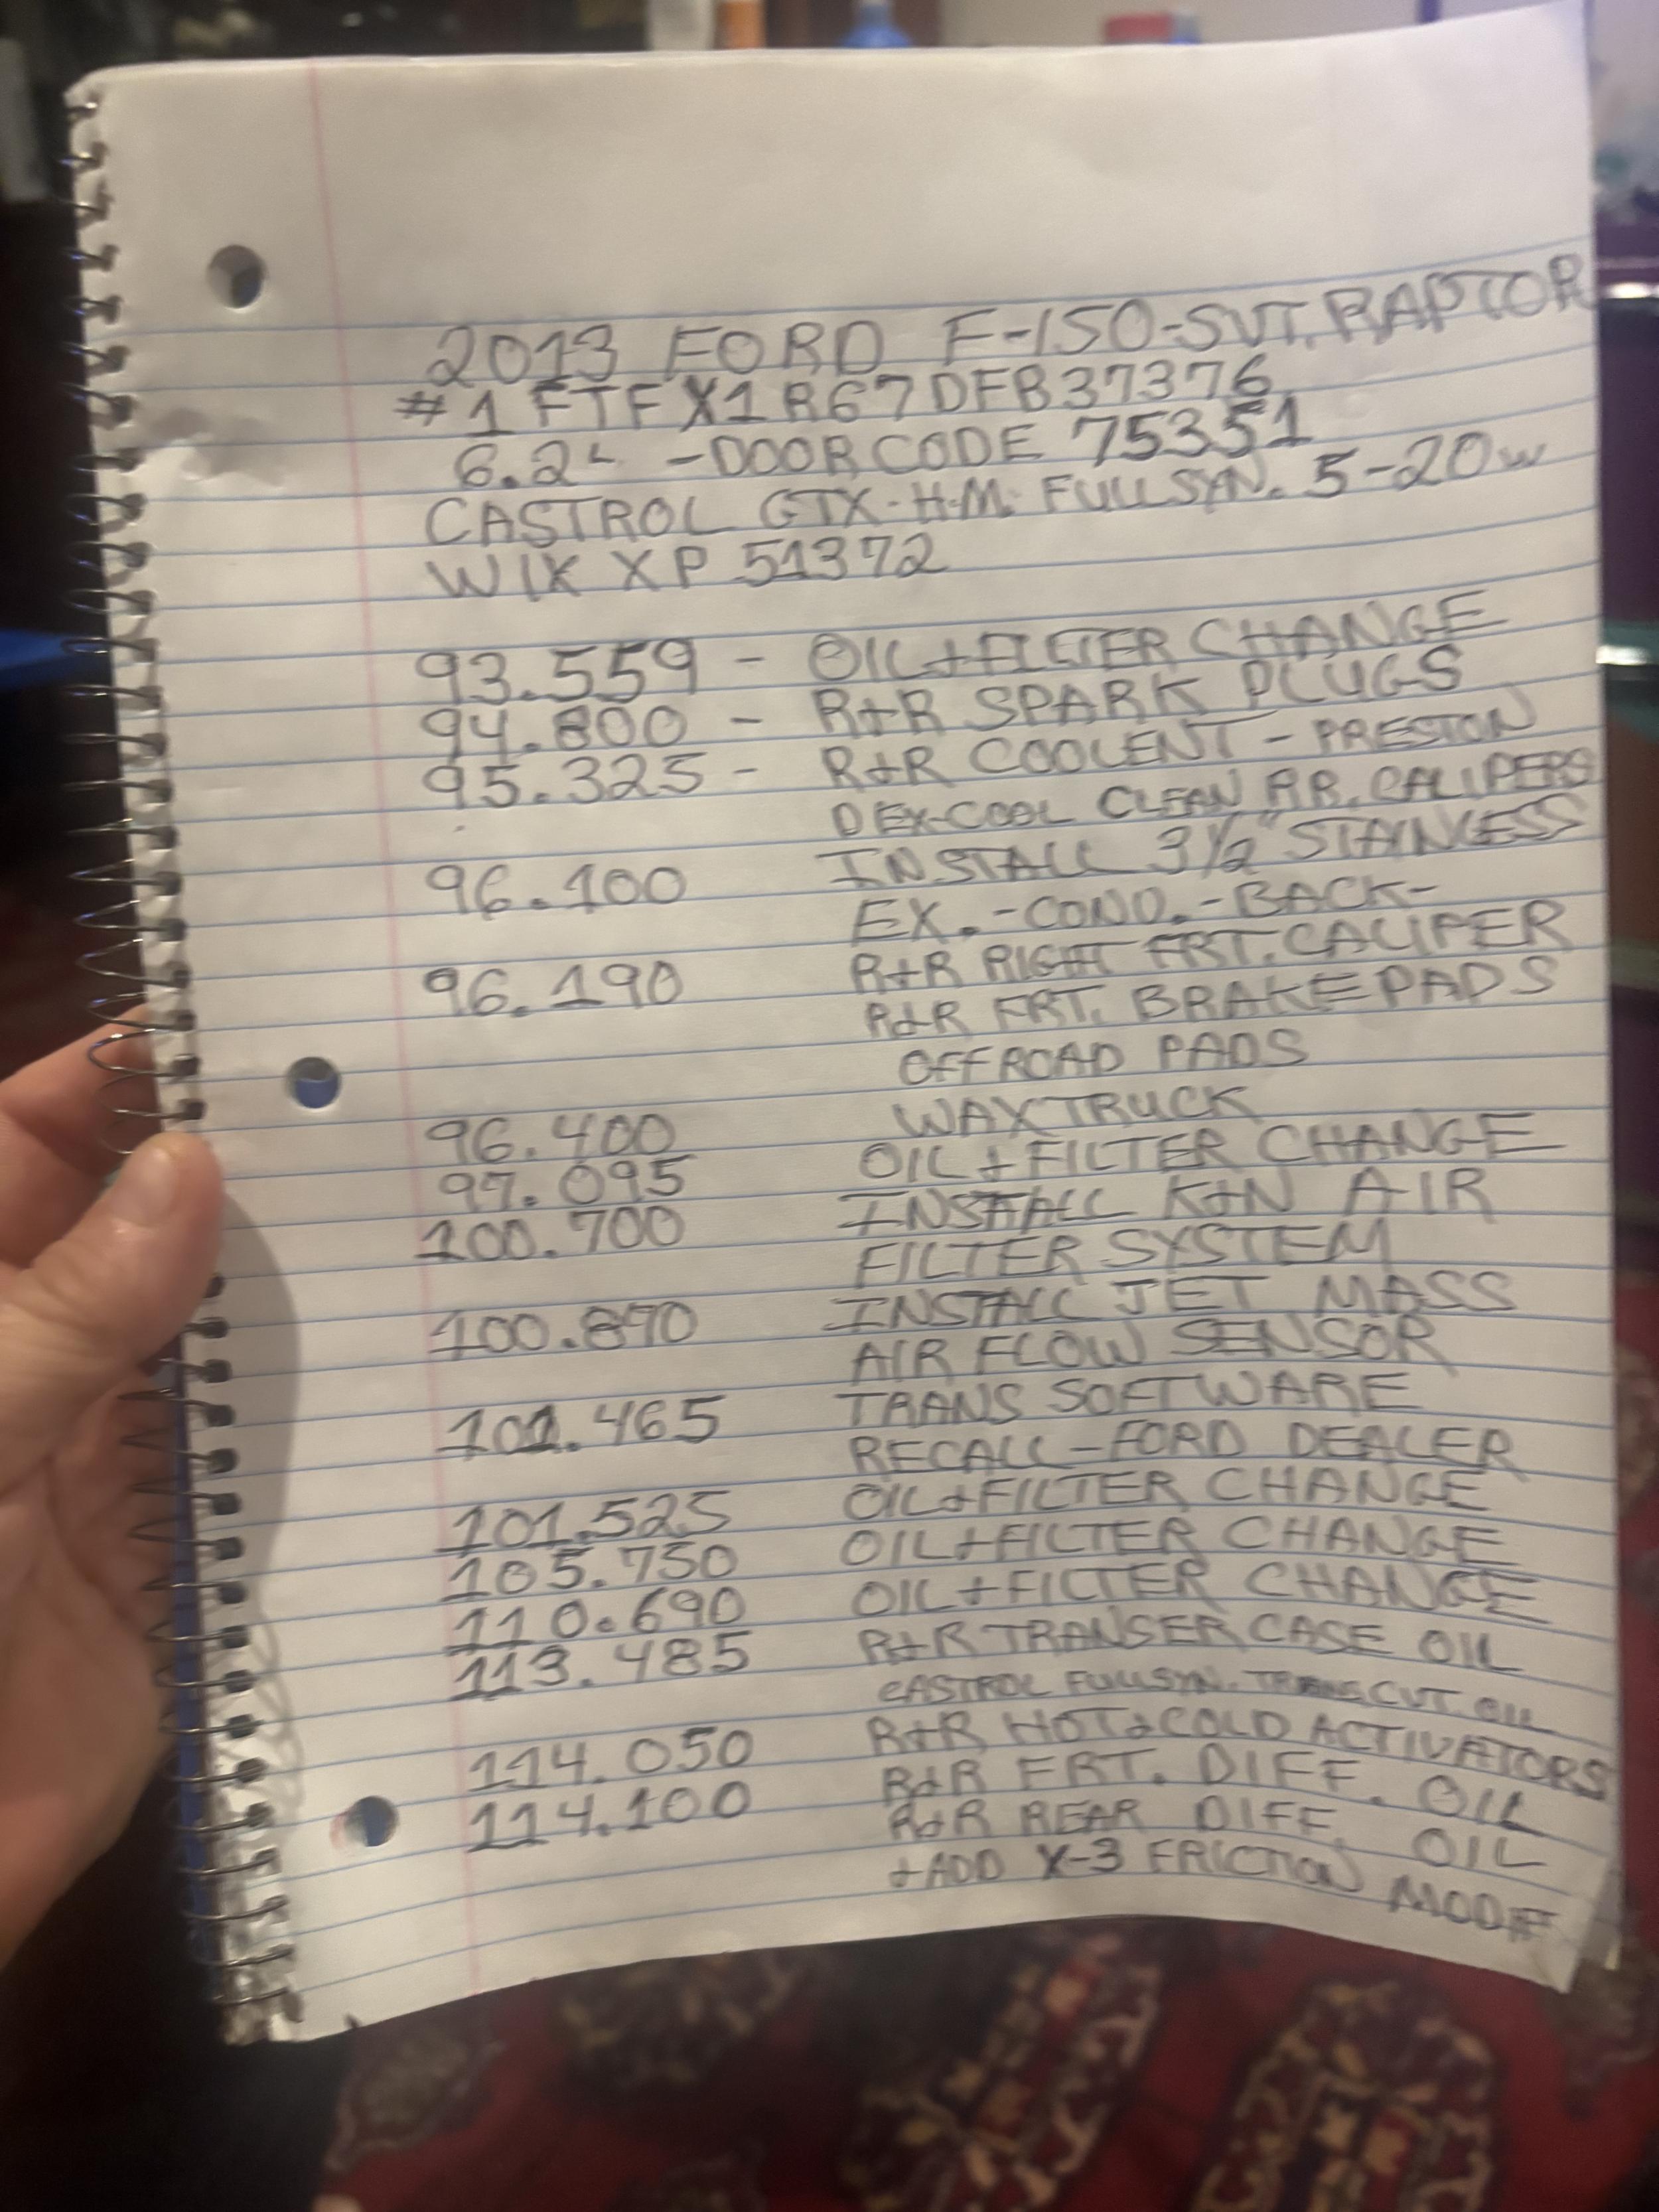 2013 FORD F-150-SVT. RAPTOR
#1FTFX1R67DFB37376
6.2L -DOOR CODE 75351
CASTROL GTX-H.M. FULL SYN. 5-20W
WIX XP 51372
93.559 - OIL+FILTER CHANGE
94.800 - R+R SPARK PLUGS
95.325 - R+R COOLENT - PRESTON
DEX-COOL CLEAN RR. CALIPERS
96.100 INSTALL 3½" STAINLESS
EX. -COND.-BACK-
96.190 R+R RIGHT FRT. CALIPER
R+R FRT. BRAKE PADS
OFF ROAD PADS
96.400 WAX TRUCK
97.095 OIL + FILTER CHANGE
100.700 INSTALL K+N AIR
FILTER SYSTEM
100.890 INSTALL JET MASS
AIR FLOW SENSOR
101.465 TRANS SOFTWARE
RECALL-FORD DEALER
101.525 OIL+FILTER CHANGE
105.750 OIL+FILTER CHANGE
110.690 OIL+FILTER CHANGE
113.485 R+R TRANSER CASE OIL
CASTROL FULL SYN. TRANS CVT. OIL
114.050 R+R HOT+COLD ACTIVATORS
114.100 R+R FRT. DIFF. OIL
R+R REAR DIFF. OIL
+ADD X-3 FRICTION MODIF